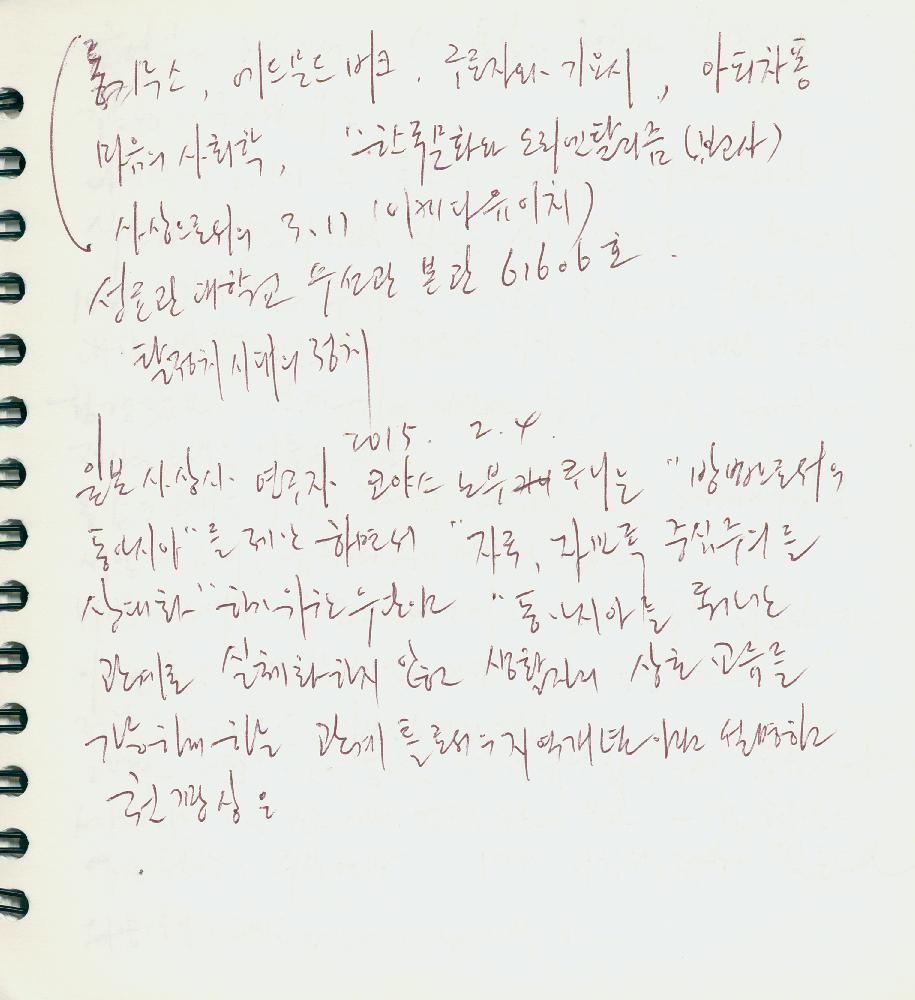 에드문드 버크. 구로자와 기요시, 아피차퐁
마음의 사회학, "한류문화와 오리엔탈리즘 (보고사)
사상으로서의 3.11 (이께다 유이치)
성균관 대학교 수선관 본관 61606호.
탈정치 시대의 정치
2015. 2. 4.
일본 사상사 연구자 코야스 노부쿠니는 "방법으로서의
동아시아"를 제안 하면서 "자국, 자민족 중심주의를
상대화" 하기 위한 수단이고 "동아시아를
관계로 실체화하지 않고 생활자의 상호 교류를
가능하게 하는 관계 틀로서의 지역개념 이라고 설명하고